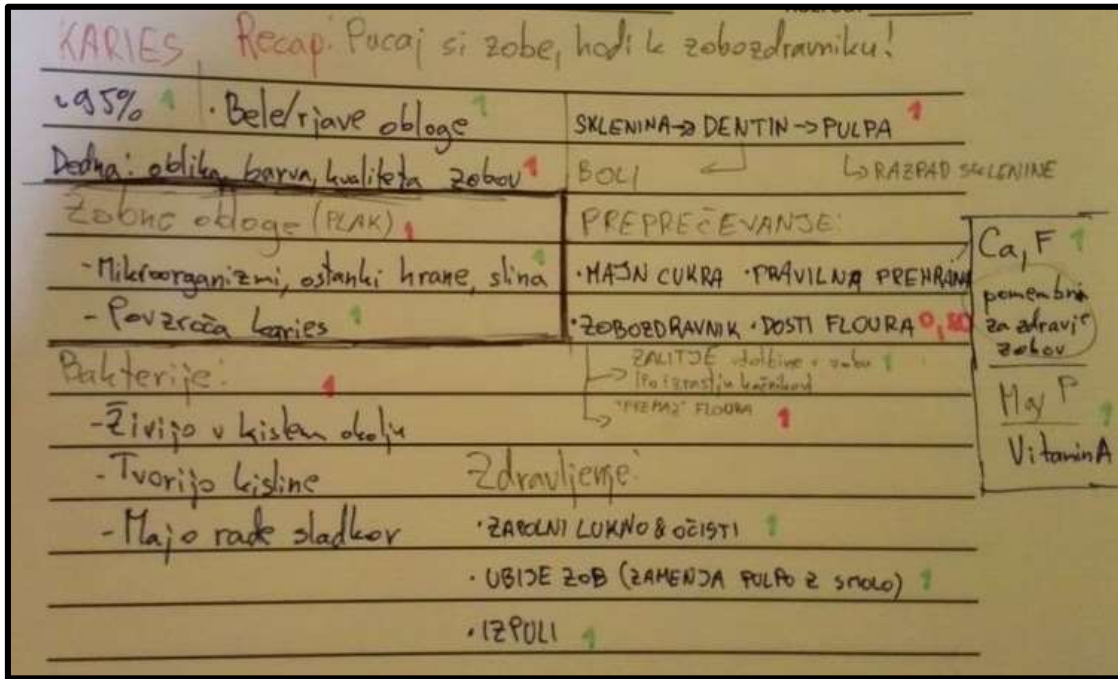 KARIES Recap: Pucaj si zobe, hodi k zobozdravniku!
~95% 1 · Bele/rjave obloge 1
Dedna: oblika, barva, kvaliteta zobov 1
Zobne obloge (PLAK) 1
- Mikroorganizmi, ostanki hrane, slina 1
- Povzroča karies 1
Bakterije: 1
- Živijo v kislem okolju
- Tvorijo kisline
- Majo rade sladkor
SKLENINA → DENTIN → PULPA 1
BOLI
RAZPAD SKLENINE
PREPREČEVANJE:
· MAJN CUKRA · PRAVILNA PREHRANA
· ZOBOZDRAVNIK · DOSTI FLOURA
ZALITJE vdolbine v zobu 1
"PREMAZ" FLOURA 1
Ca, F 1
pomembna
za zdravje
zobov
Maj P 1
Vitamin A
Zdravljenje:
· ZAPOLNI LUKNO & OČISTI 1
· UBIJE ZOB (ZAMENJA PULPO Z SMOLO) 1
· IZPULI 1